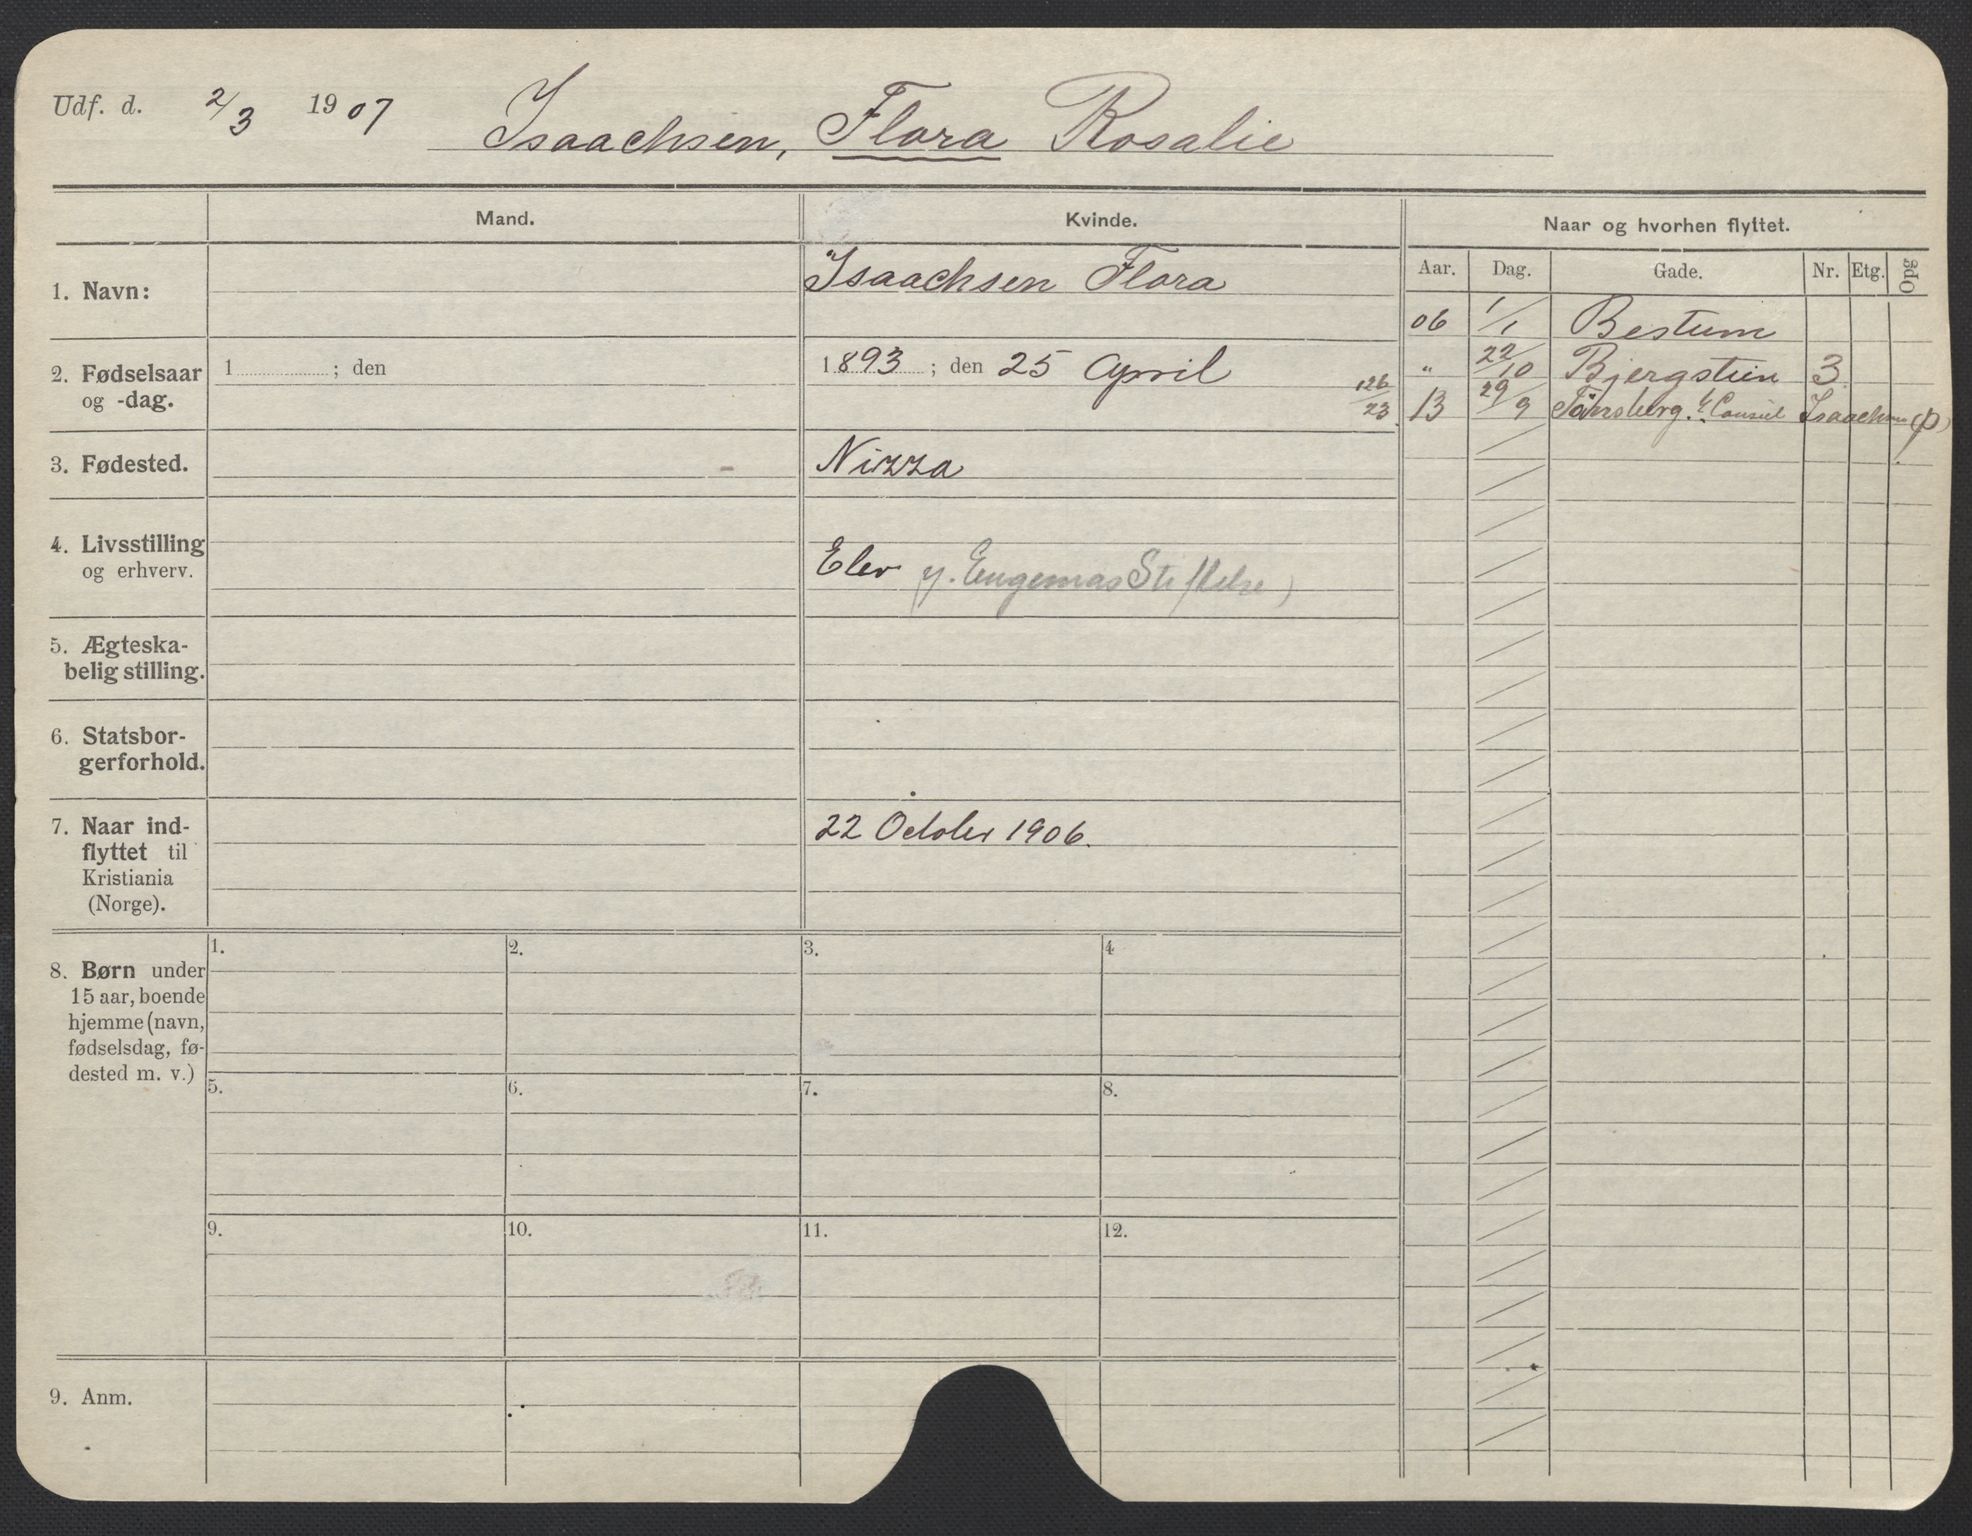 Udf. d. 2/3 1907 Isaachsen, Flora Rosalie
Mand. Kvinde. Naar og hvorhen flyttet.
Aar. Dag. Gade. Nr. Etg. Opg
1. Navn: Isaachsen Flora
06 1/1 Bestum
2. Fødselsaar og -dag. 1 ; den 1893 ; den 25 April
" 22/10 Bjergstien 3
126/23 13 29/9 Tönsberg. Consul Isaachsen (p)
3. Fødested. Nizza
4. Livsstilling og erhverv. Elev Eugenias Stiftelse)
5. Ægteska-
belig stilling.
6. Statsbor-
gerforhold.
7. Naar ind-
flyttet til
Kristiania
(Norge).
22 October 1906.
8. Børn under
15 aar, boende
hjemme (navn,
fødselsdag, fø-
dested m. v.)
1. 2. 3. 4
5. 6. 7. 8.
9. 10. 11. 12.
9. Anm.